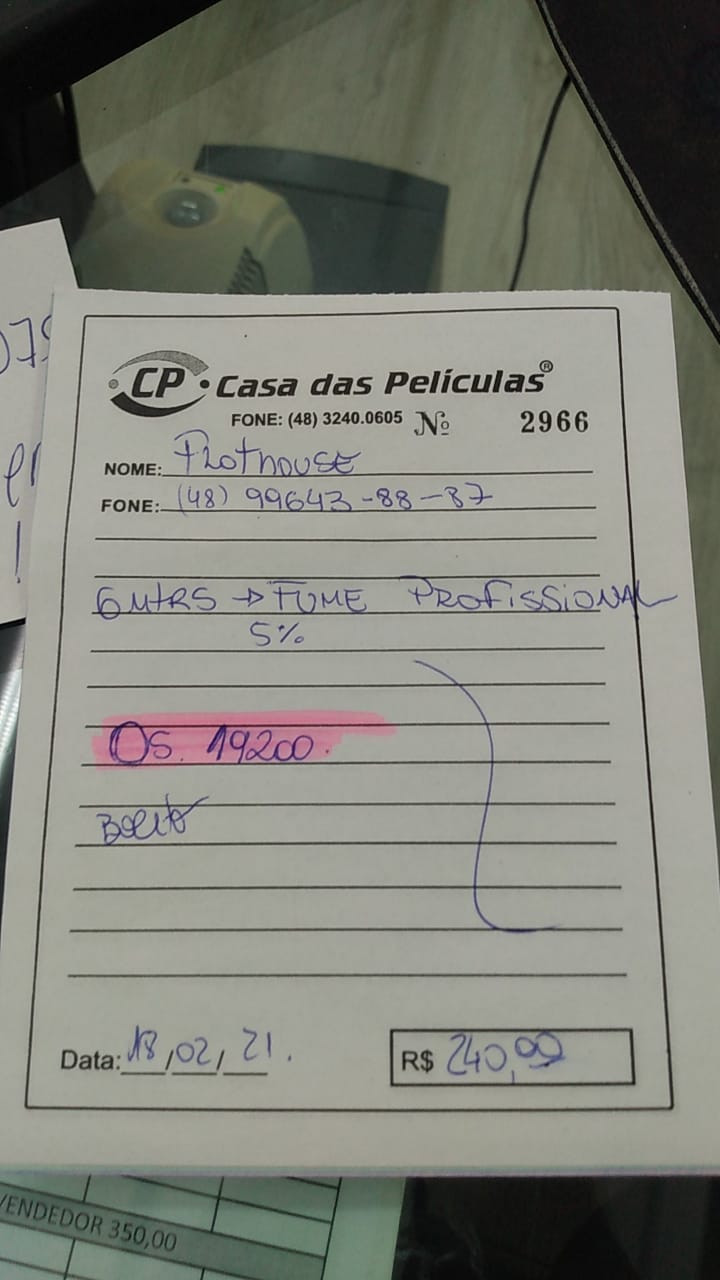 CP Casa das Películas®
FONE: (48) 3240.0605 Nº 2966
NOME: Plothouse
FONE: (48) 99643-88-87
6 MtRS → FUME PROFISSIONAL
5%
Os. 19200.
Boleto
Data: 18/02/21.
R$ 240,00
VENDEDOR 350,00